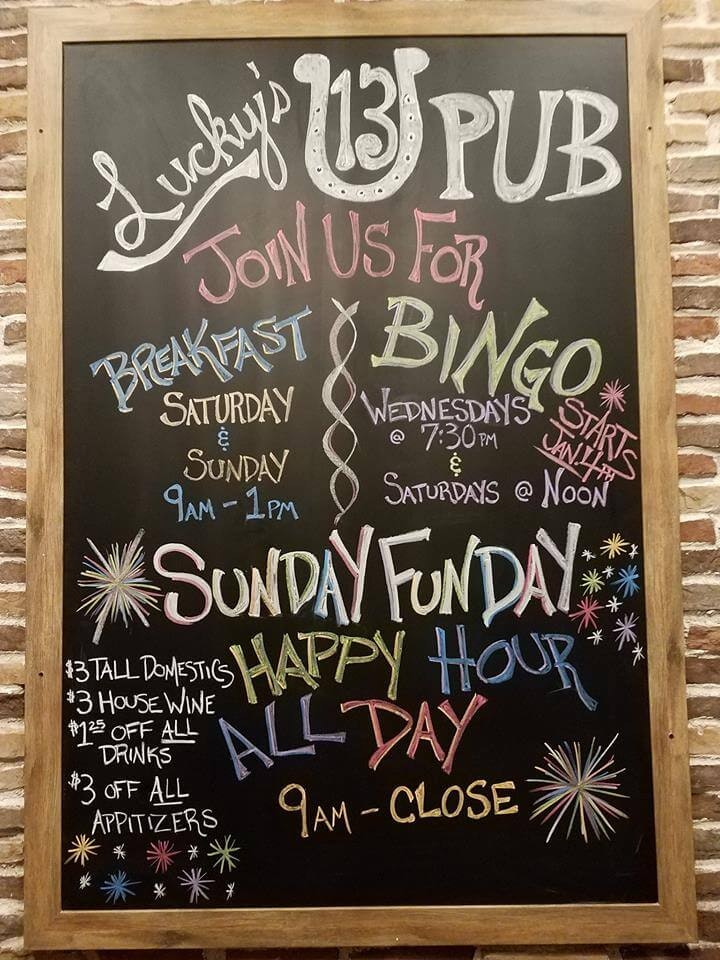 Lucky's 13 PUB
JOIN US FOR
BREAKFAST
SATURDAY
&
SUNDAY
9AM - 1PM
BINGO
WEDNESDAYS
@ 7:30 PM
&
SATURDAYS @ NOON
STARTS
JAN. 4TH
SUNDAY FUNDAY
HAPPY HOUR
ALL DAY
9AM - CLOSE
$3 TALL DOMESTICS
$3 HOUSE WINE
$1.25 OFF ALL
DRINKS
$3 OFF ALL
APPITIZERS